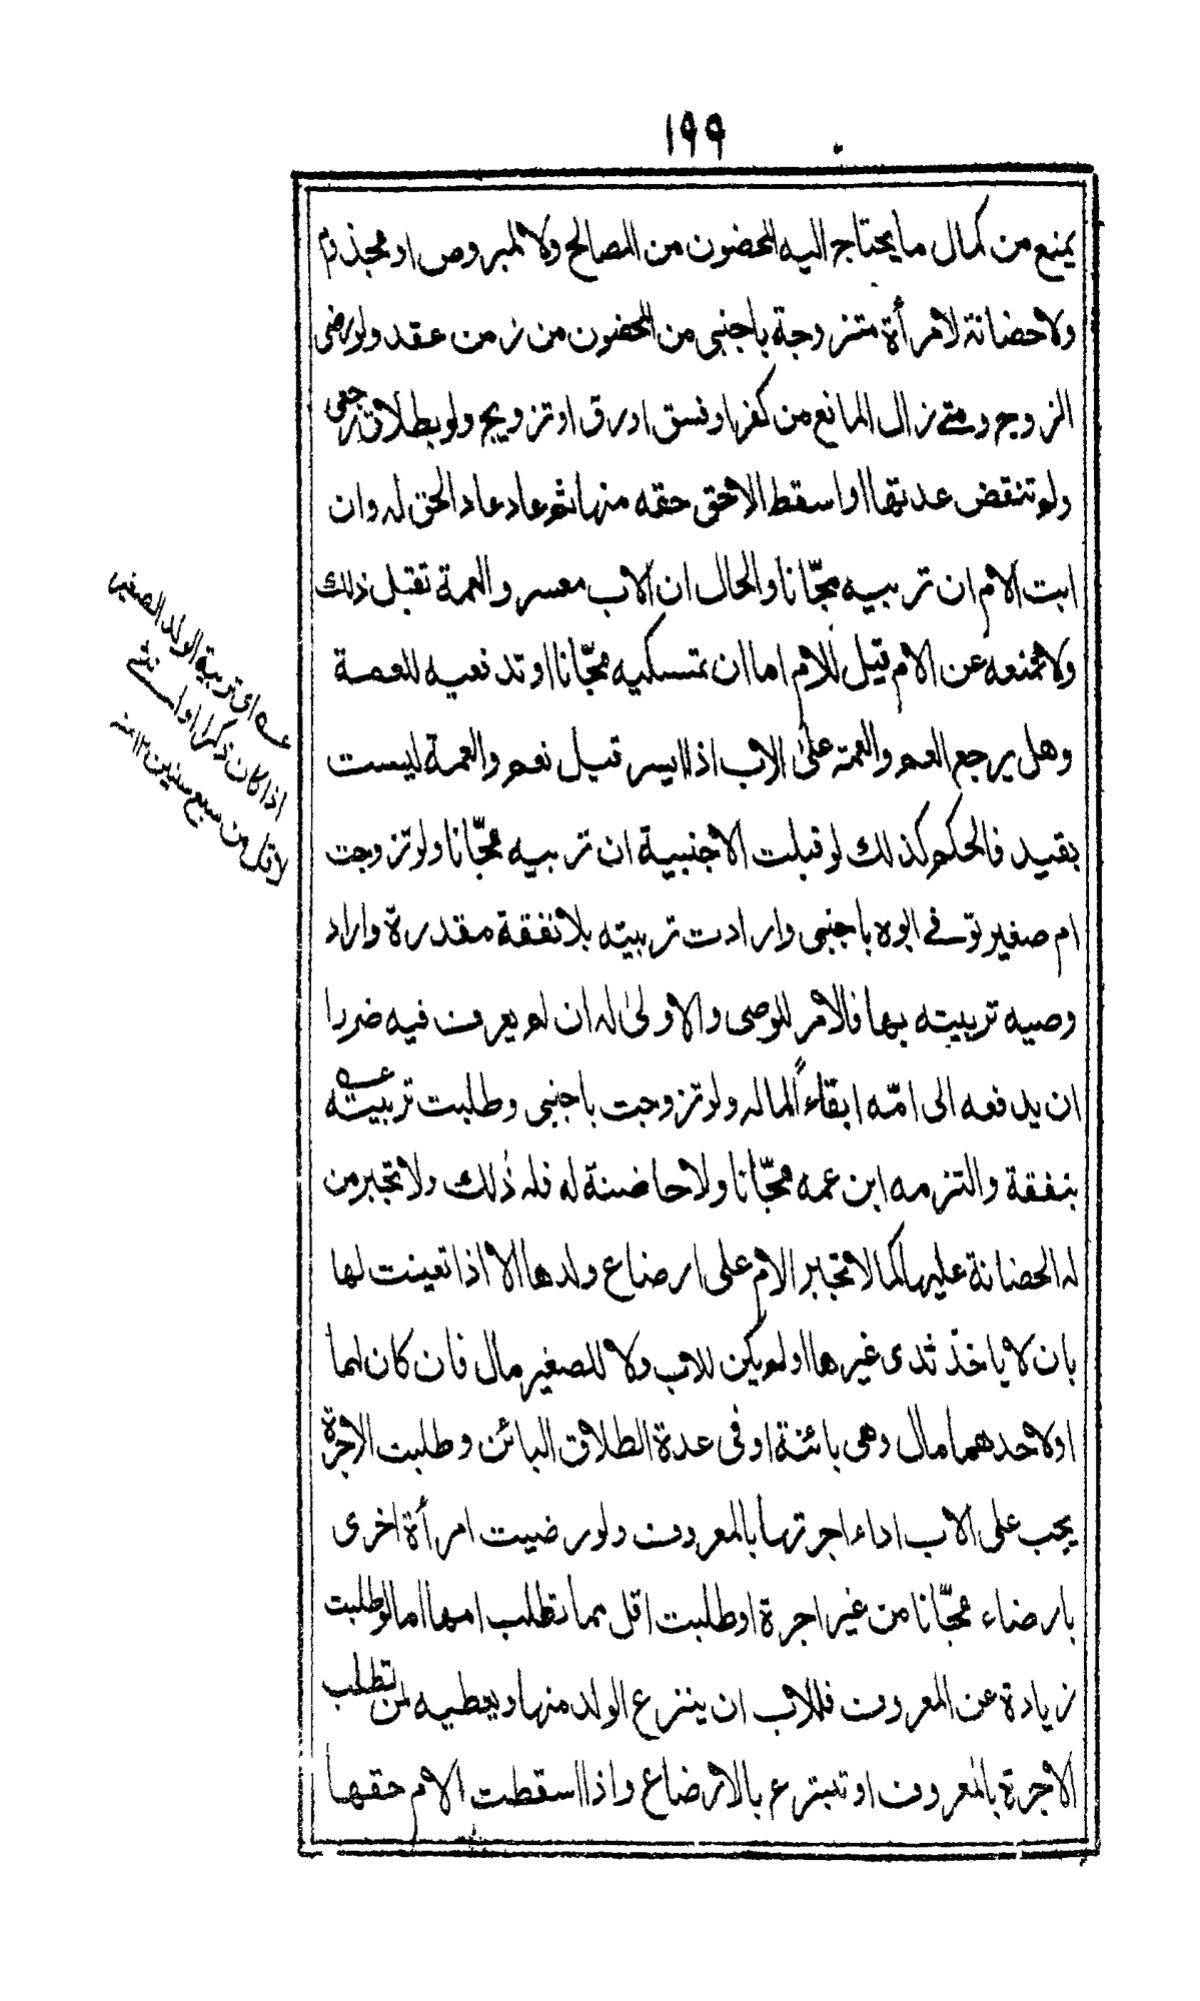 ١٩٩
يمنع من كمال ما يحتاج اليه المحضون من المصالح ولا لمبروص او مجذوم
ولا حضانة لامرأة متزوجة باجنبي من المحضون من زمن عقد ولو رضى
الزوج ومتى زال المانع من كفر او فسق او رق او تزويج ولو بطلاق رجعى
ولو تنقض عدتها او اسقط الاحق حقه منها ثم عاد عاد الحق له وان
ابت الام ان تربيه مجّانا والحال ان الاب معسر والعمة تقبل ذلك
ولا تمنعه عن الام قيل للام اما ان تمسكيه مجّانا او تدفعيه للعمة
وهل يرجع العم والعمة على الاب اذا ايسر قيل نعم والعمة ليست
بقيد فالحكم كذلك لو قبلت الاجنبية ان تربيه مجّانا ولو تزوجت
ام صغير توفى ابوه باجنبى وارادت تربيته بلا نفقة مقدرة واراد
وصيه تربيته بها فالامر للوصى والاولى له ان لم يعرف فيه ضررا
ان يدفعه الى امّه ابقاءً لماله ولو تزوجت باجنبى وطلبت تربيته عـه
بنفقة والتزمه ابن عمه مجّانا ولا حاضنة له فله ذلك ولا تجبر من
له الحضانة عليها كما لا تجبر الام على ارضاع ولدها الا اذا تعينت لها
بان لا ياخذ ثدى غيرها او لم يكن للاب ولا للصغير مال فان كان لهما
او لاحدهما مال وهى بائنة او فى عدة الطلاق البائن وطلبت الاجرة
يجب على الاب اداء اجرتها بالمعروف ولو رضيت امرأة اخرى
بارضاء مجّانا من غير اجرة او طلبت اقل مما تطلب امها اما لو طلبت
زيادة عن المعروف فللاب ان ينزع الولد منها ويعطيه لمن تطلب
الاجرة بالمعروف او تتبرع بالارضاع واذا اسقطت الام حقها
عـه اى تربية الولد الصغير
اذا كان ذكرا او انثى
لاقل من سبع سنين ١٢ منه